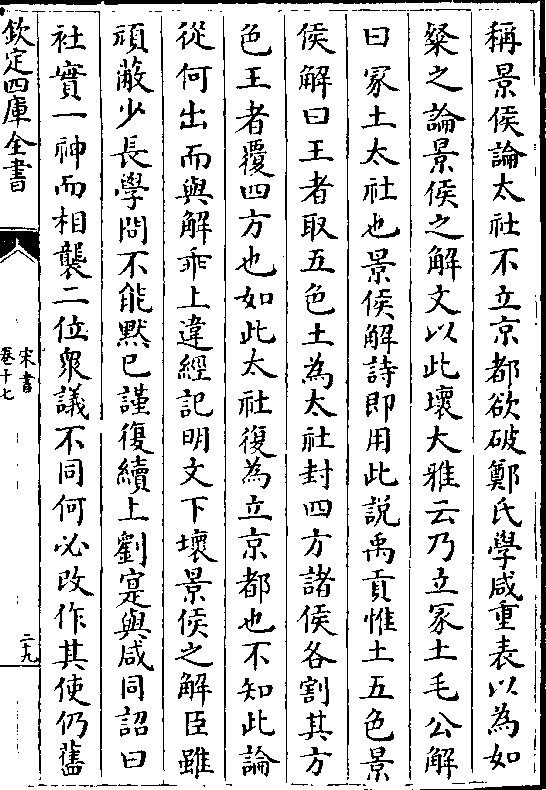 稱景侯論太社不立京都欲破鄭氏學咸重表以為如
粲之論景侯之解文以此壞大雅云乃立冢土毛公解
曰冢土太社也景侯解詩即用此說禹貢惟土五色景
侯解曰王者取五色土為太社封四方諸侯各割其方
色王者覆四方也如此太社復為立京都也不知此論
從何出而與解乖上違經記明文下壞景侯之解臣雖
頑蔽少長學問不能黙已謹復續上劉寔與咸同詔曰
社實一神而相襲二位衆議不同何必改作其使仍舊
欽定四庫全書
宋書
卷十七
二九